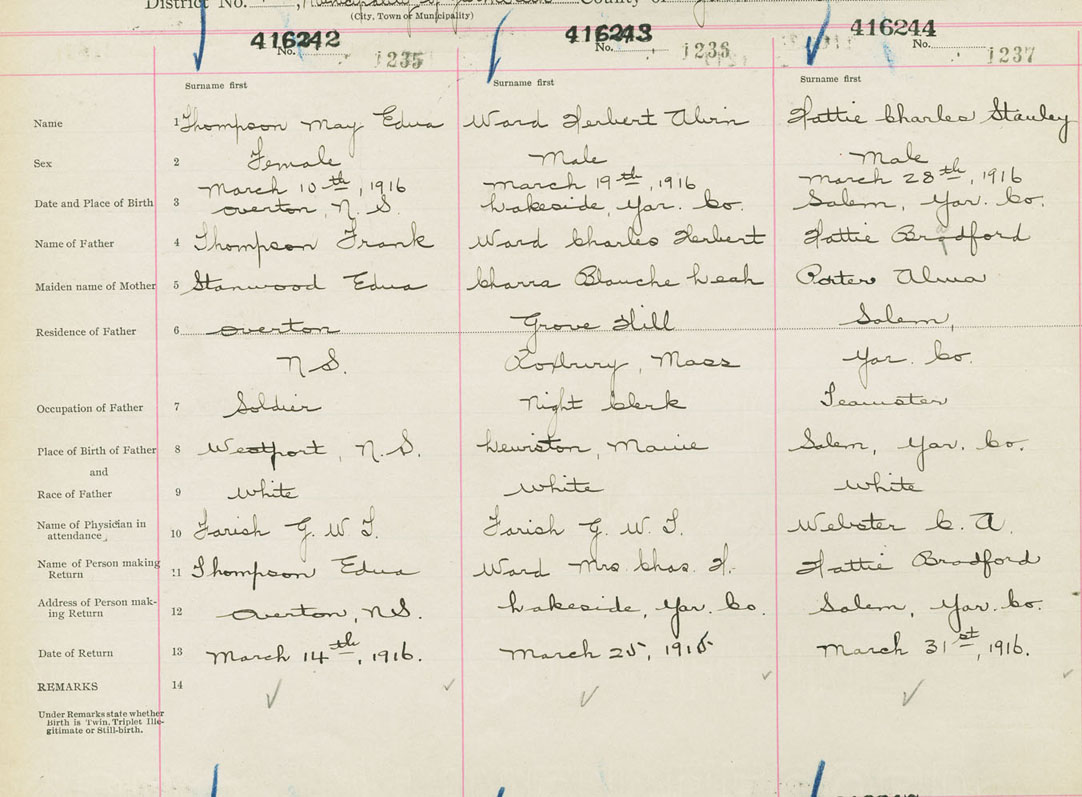 District No. Municipality of County of
(City, Town or Municipality)
416242 416243 416244
No. 1235 No. 1236 No. 1237
Surname first Surname first Surname first
Name 1 Thompson May Edna Ward Herbert Alvin Hattie Charles Stanley
Sex 2 Female Male Male
March 10th, 1916 March 19th, 1916 March 28th, 1916
Date and Place of Birth 3 Overton, N.S. Lakeside, Yar. Co. Salem, Yar. Co.
Name of Father 4 Thompson Frank Ward Charles Herbert Hattie Bradford
Maiden name of Mother 5 Stanwood Edna Blanche Leah Porter Alma
Residence of Father 6 Overton Grove Hill Salem,
N.S. Roxbury, Mass Yar. Co.
Occupation of Father 7 Soldier Night Clerk Teamster
Place of Birth of Father 8 Westport, N.S. Lewiston, Maine Salem, Yar. Co.
and
Race of Father 9 White White White
Name of Physician in
attendance 10 Farish G. W. T. Farish G. W. T. Webster C. A.
Name of Person making
Return 11 Thompson Edna Ward Mrs. Chas. H. Hattie Bradford
Address of Person mak-
ing Return 12 Overton, N.S. Lakeside, Yar. Co. Salem, Yar. Co.
Date of Return 13 March 14th, 1916. March 25, 1916 March 31st, 1916.
REMARKS 14
Under Remarks state whether
Birth is Twin, Triplet Ille-
gitimate or Still-birth.